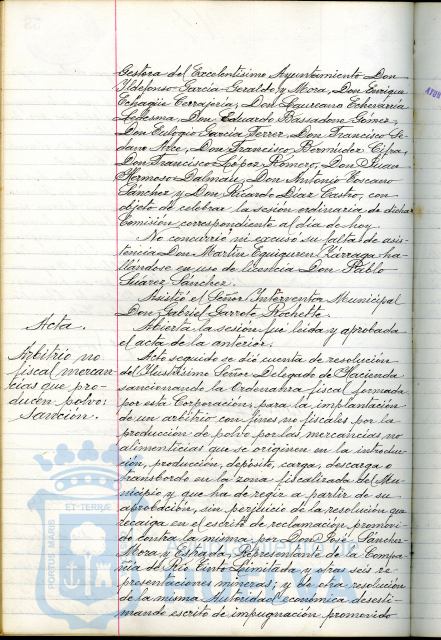 Gestora del Excelentísimo Ayuntamiento Don
Ildefonso García-Geraldo y Mora, Don Enrique
Echagüe Torrajería, Don Laureano Echevarría
Ledesma, Don Eduardo Bassadone Gómez,
Don Eulogio García Ferrer, Don Francisco Se-
dano Arce, Don Francisco Bermúdez Cifra,
Don Francisco López Romero, Don Juan
Hermoso Dalmau, Don Antonio Toscano
Sánchez y Don Ricardo Díaz Castro, con
objeto de celebrar la sesión ordinaria de dicha
Comisión, correspondiente al día de hoy.
No concurrió ni excusó su falta de asis-
tencia Don Martín Eguiguren Zárraga ha-
llándose en uso de licencia Don Pablo
Suárez Sánchez.
Asistió el Señor Interventor Municipal
Don Gabriel Garrote Rochette.
Acta.
Abierta la sesión fué leída y aprobada
el acta de la anterior.
Arbitrio no
fiscal mercan-
cias que pro-
ducen polvo:
Sanción.
Acto seguido se dió cuenta de resolución
del Ilustrísimo Señor Delegado de Hacienda
sancionando la Ordenanza fiscal formada
por esta Corporación, para la implantación
de un arbitrio con fines no fiscales por la
producción de polvo por las mercancías no
alimenticias que se originen en la introduc-
ción, producción, depósito, carga, descarga o
transbordo en la zona fiscalizada del Mu-
nicipio y que ha de regir a partir de su
aprobación, sin perjuicio de la resolución que
recaiga en el escrito de reclamación promovi-
do contra la misma por Don José Sánchez-
Mora y Estrada, Representante de la Compa-
ñía de Río Tinto Limitada y otras seis re-
presentaciones mineras; y de otra resolución
de la misma Autoridad económica desesti-
mando escrito de impugnación promovido
PORTUS MARIS
ET TERRÆ